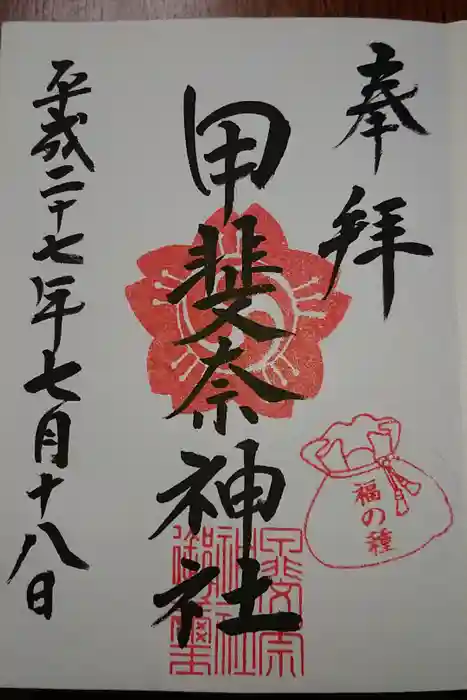 奉拝
甲斐奈神社
平成二十七年七月十八日
福の種
甲斐奈
神社
御璽